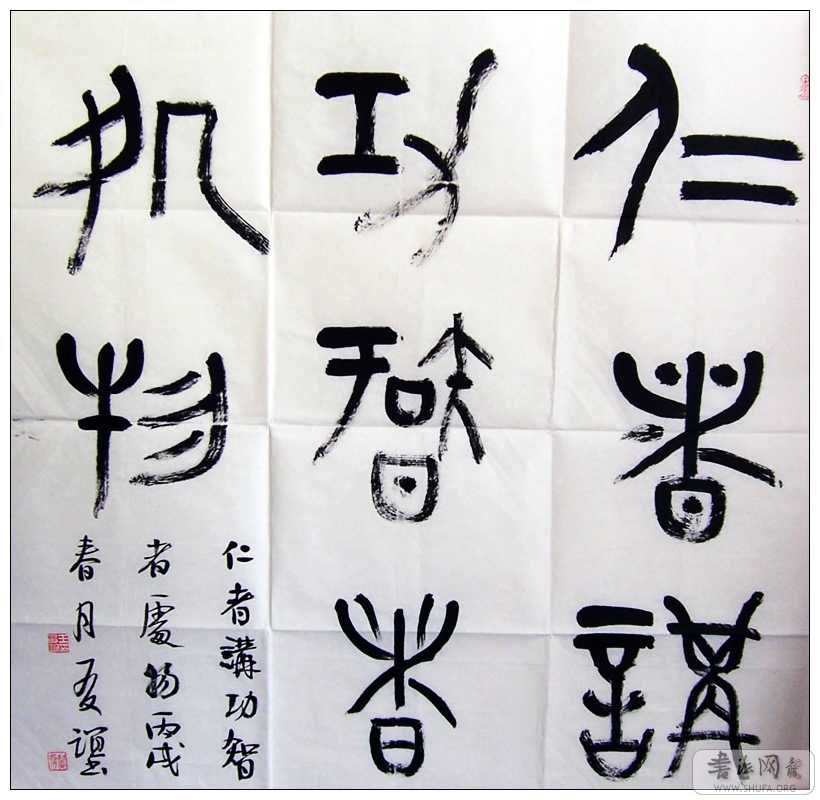 仁者講
功智者
処物
仁者講功智
者處物丙戌
春月
書法网
WWW.SHUFA.ORG